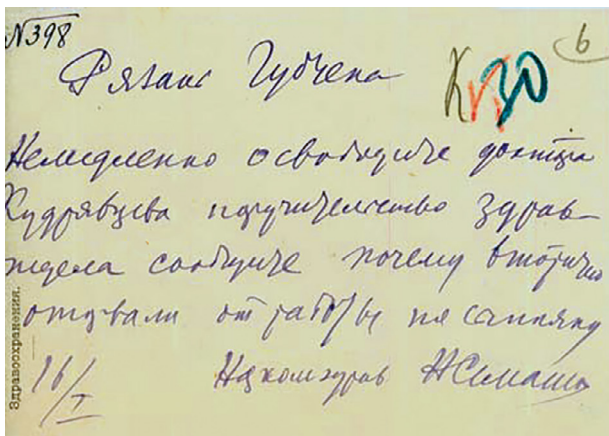 N398
6
Рязань Губчека
Немедленно освободите доктора
Кудрявцева поручительство здрав-
отдела сообщите почему вторично
отозвали от работы по сыпняку
16/I Наркомздрав НСемашко
Здравоохранения.